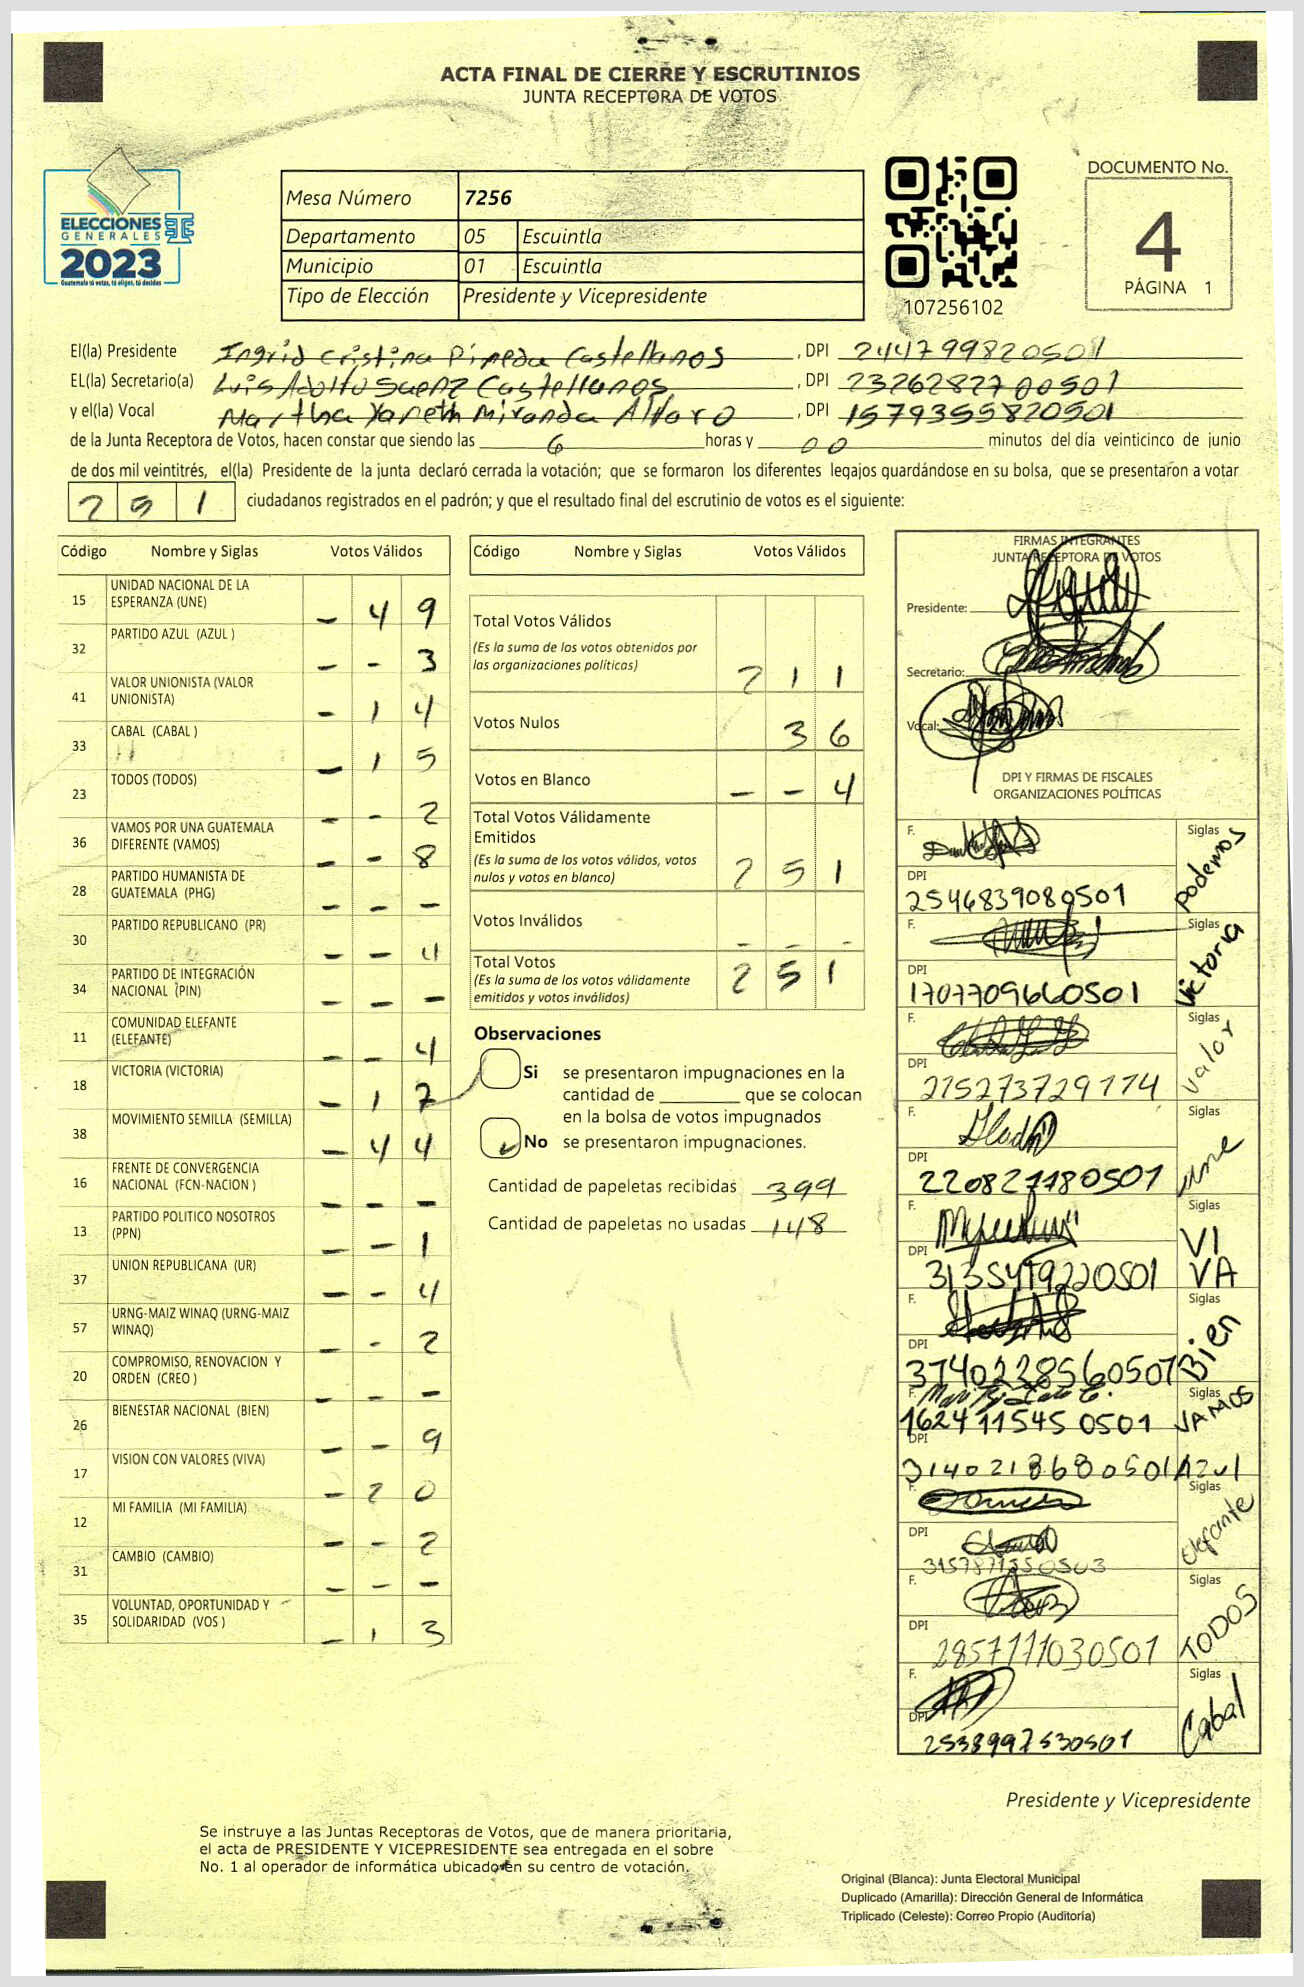 ACTA FINAL DE CIERRE Y ESCRUTINIOS
JUNTA RECEPTORA DE VOTOS
ELECCIONES
GENERALES
2023
Guatemala tú votas, tú eliges, tú decides
Mesa Número 7256
Departamento 05 Escuintla
Municipio 01 Escuintla
Tipo de Elección Presidente y Vicepresidente
107256102
DOCUMENTO No.
4
PÁGINA 1
El(la) Presidente Ingrid Cristina Pineda Castellanos, DPI 244799820501
EL(la) Secretario(a) Luis Adolfo Saenz Castellanos, DPI 2326282700501
y el(la) Vocal Martha Yaneth Miranda Alfaro, DPI 1579355820501
de la Junta Receptora de Votos, hacen constar que siendo las 6 horas y 00 minutos del día veinticinco de junio
de dos mil veintitrés, el(la) Presidente de la junta declaró cerrada la votación; que se formaron los diferentes legajos guardándose en su bolsa, que se presentaron a votar
251 ciudadanos registrados en el padrón; y que el resultado final del escrutinio de votos es el siguiente:
Código Nombre y Siglas Votos Válidos
15 UNIDAD NACIONAL DE LA ESPERANZA (UNE) - 4 9
32 PARTIDO AZUL (AZUL ) - - 3
41 VALOR UNIONISTA (VALOR UNIONISTA) - 1 4
33 CABAL (CABAL ) - 1 5
23 TODOS (TODOS) - - 2
36 VAMOS POR UNA GUATEMALA DIFERENTE (VAMOS) - - 8
28 PARTIDO HUMANISTA DE GUATEMALA (PHG) - - -
30 PARTIDO REPUBLICANO (PR) - - 4
34 PARTIDO DE INTEGRACIÓN NACIONAL (PIN) - - -
11 COMUNIDAD ELEFANTE (ELEFANTE) - - 4
18 VICTORIA (VICTORIA) - 1 7
38 MOVIMIENTO SEMILLA (SEMILLA) - 4 4
16 FRENTE DE CONVERGENCIA NACIONAL (FCN-NACION ) - - -
13 PARTIDO POLITICO NOSOTROS (PPN) - - 1
37 UNION REPUBLICANA (UR) - - 4
57 URNG-MAIZ WINAQ (URNG-MAIZ WINAQ) - - 2
20 COMPROMISO, RENOVACION Y ORDEN (CREO ) - - -
26 BIENESTAR NACIONAL (BIEN) - - 9
17 VISION CON VALORES (VIVA) - 2 0
12 MI FAMILIA (MI FAMILIA) - - 2
31 CAMBIO (CAMBIO) - - -
35 VOLUNTAD, OPORTUNIDAD Y SOLIDARIDAD (VOS ) - 1 3
Código Nombre y Siglas Votos Válidos
Total Votos Válidos
(Es la suma de los votos obtenidos por
las organizaciones políticas) 2 1 1
Votos Nulos 3 6
Votos en Blanco - - 4
Total Votos Válidamente
Emitidos
(Es la suma de los votos válidos, votos
nulos y votos en blanco) 2 5 1
Votos Inválidos - - -
Total Votos
(Es la suma de los votos válidamente
emitidos y votos inválidos) 2 5 1
Observaciones
Si se presentaron impugnaciones en la
cantidad de ________ que se colocan
en la bolsa de votos impugnados
No se presentaron impugnaciones.
Cantidad de papeletas recibidas 399
Cantidad de papeletas no usadas 148
FIRMAS INTEGRANTES
JUNTA RECEPTORA DE VOTOS
Presidente:
Secretario:
Vocal:
DPI Y FIRMAS DE FISCALES
ORGANIZACIONES POLÍTICAS
F. Siglas Podemos
DPI 2546839080501
F. Siglas Victoria
DPI 1707709660501
F. Siglas Valor
DPI 215273729774
F. Siglas une
DPI 220827780501
F. Siglas VIVA
DPI 3135419220501
F. Siglas Bien
DPI 3740228560507
F. Siglas VAMOS
1624115450501
DPI 3140218680501 Azul
F. Siglas elefante
DPI 3157871350503
F. Siglas TODOS
DPI 2857111030501
F. Siglas Cabal
DPI 2538997530501
Presidente y Vicepresidente
Se instruye a las Juntas Receptoras de Votos, que de manera prioritaria,
el acta de PRESIDENTE Y VICEPRESIDENTE sea entregada en el sobre
No. 1 al operador de informática ubicado en su centro de votación.
Original (Blanca): Junta Electoral Municipal
Duplicado (Amarilla): Dirección General de Informática
Triplicado (Celeste): Correo Propio (Auditoría)